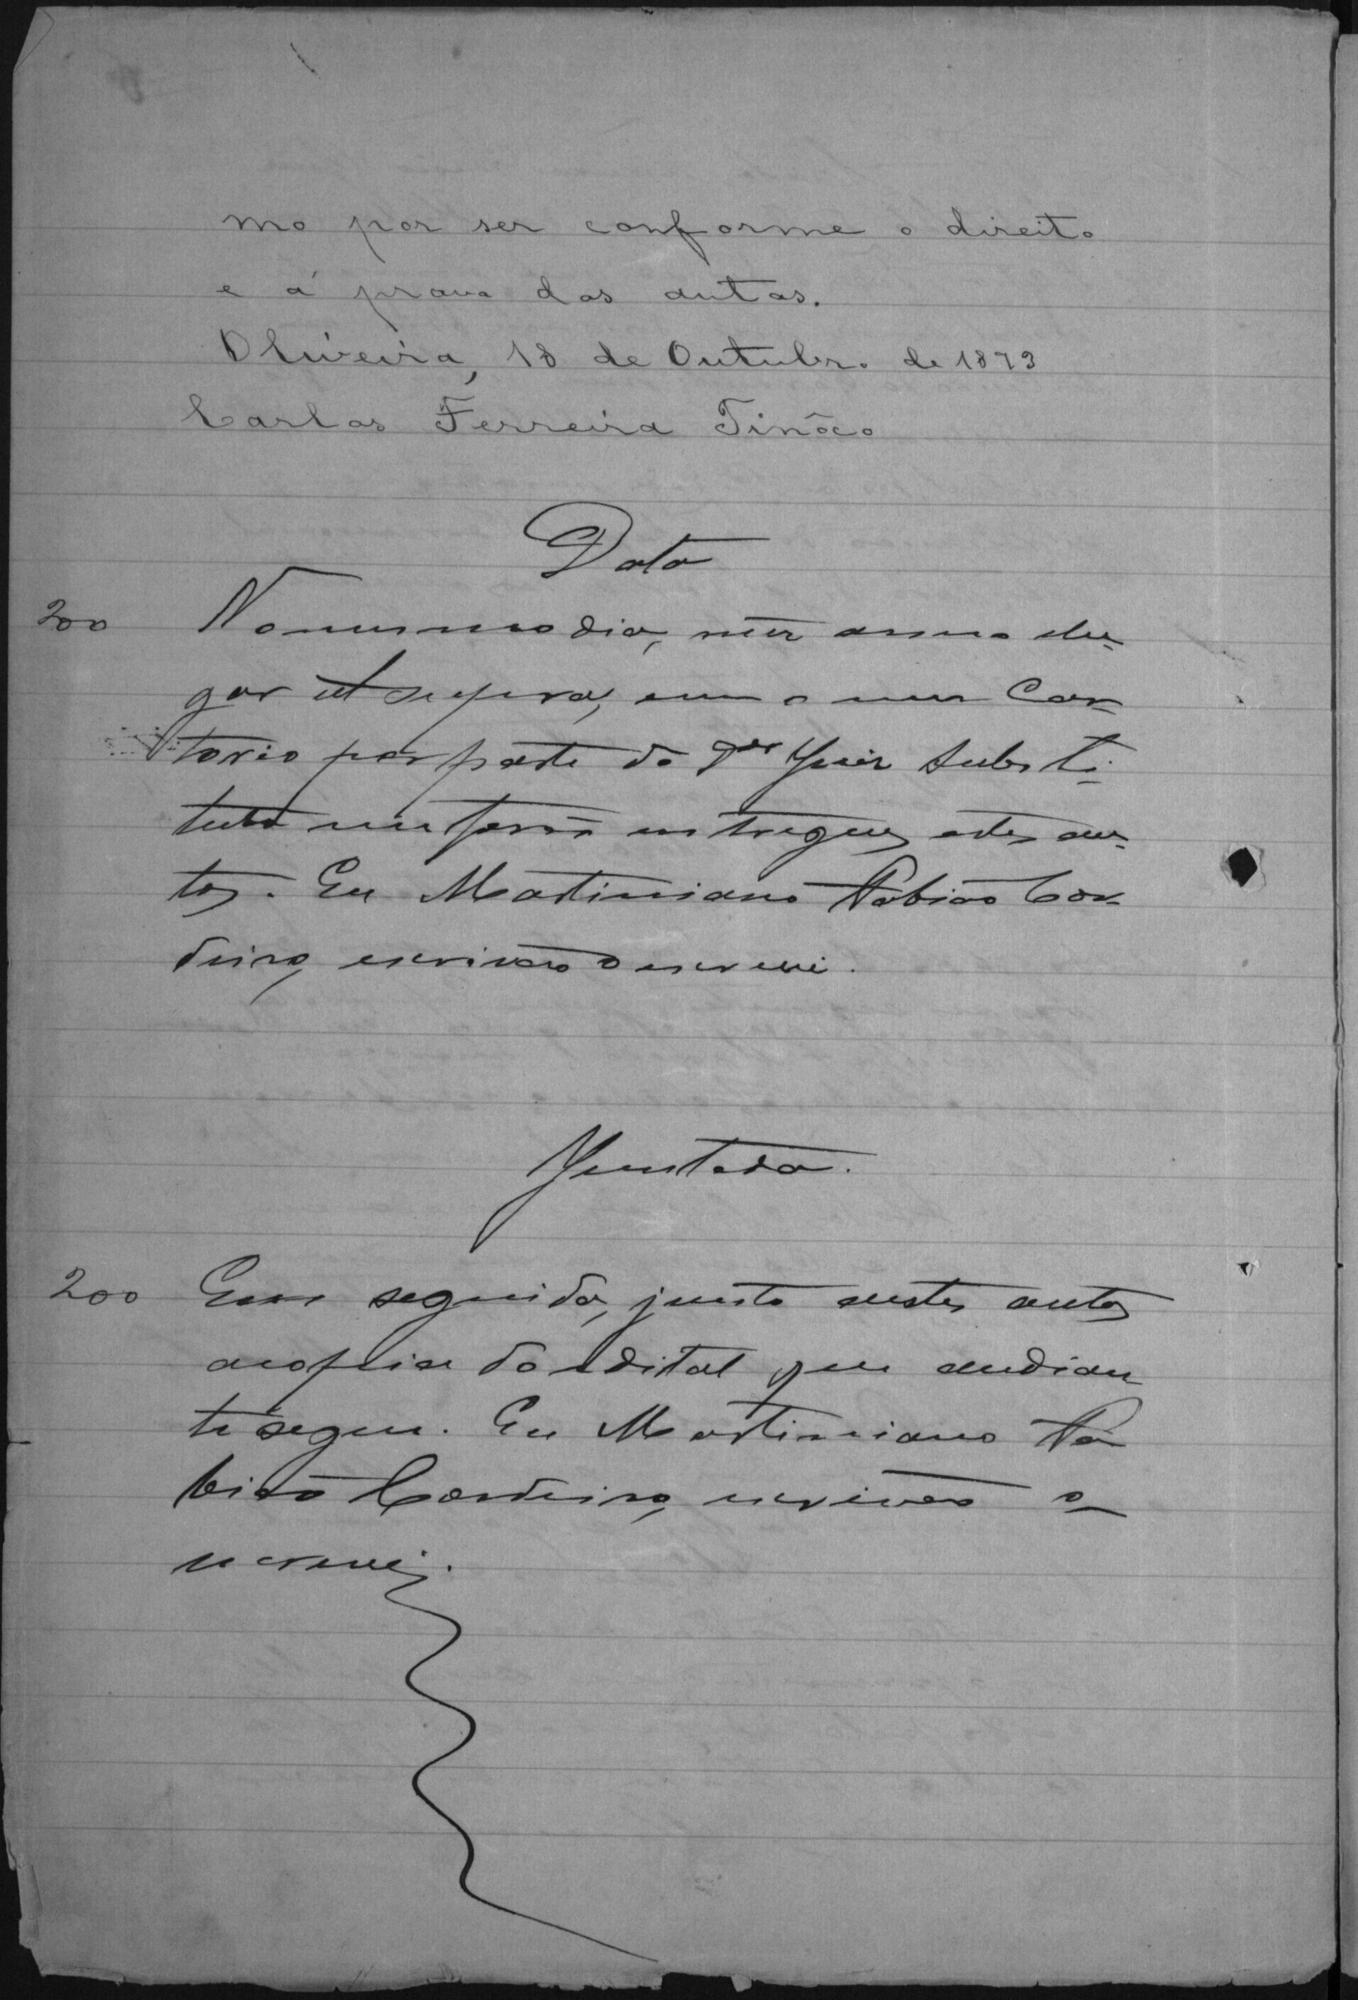 mo por ser conforme o direito
e á prova dos autos.
Oliveira, 18 de Outubro de 1893
Carlos Ferreira Tinôco
Data
200 No mesmo dia, mez anno e lu-
gar ut supra, em o meu Car-
torio por parte do Dr Juiz Substi-
tuto me forão entregues estes au-
tos. Eu Martiniano Fabião Cor-
deiro, escrivão o escrevi.
Juntada.
200 Em seguida, junto a estes autos
a copia do edital que adian
te segue. Eu Martiniano Fa
bião Cordeiro, escrivão o
escrevi.